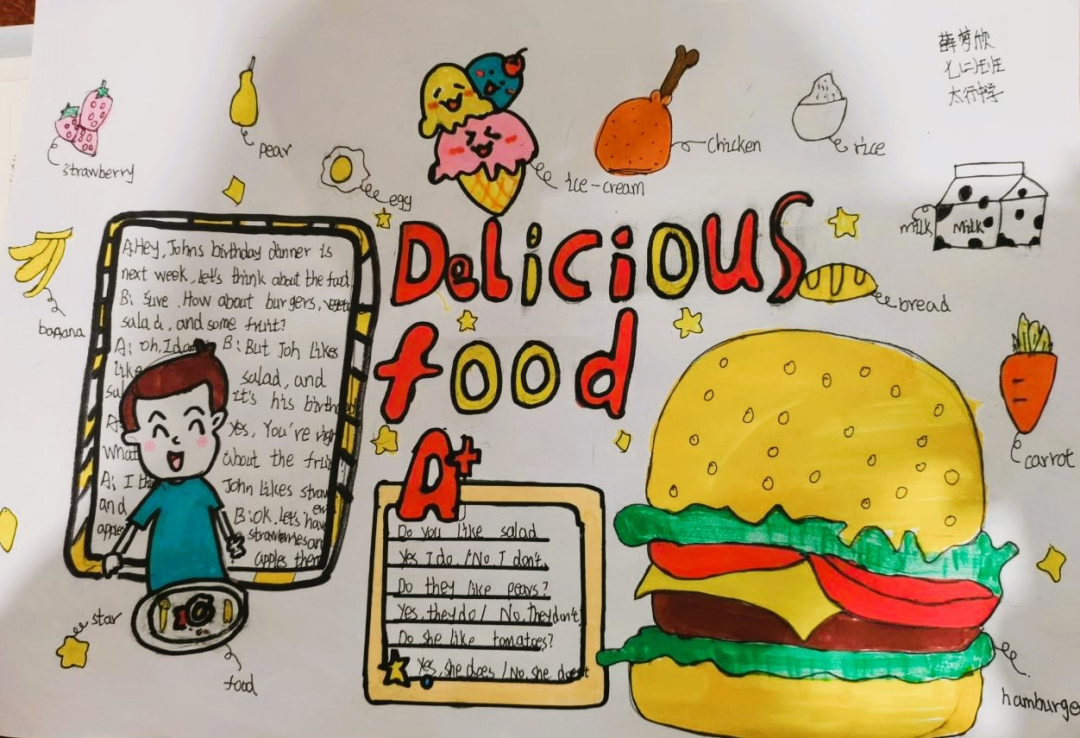 薛梦欣
七二班
太行中学
strawberry
pear
egg
ice-cream
chicken
rice
milk
Milk
banana
bread
carrot
Delicious
food
A:Hey, Johns birthday dinner is
next week, let's think about the food.
B: Sure. How about burgers,
salad, and some fruit?
A: oh, I don
B: But Joh likes
like
salad, and
It's his birth
Yes, You're
What
about the
A: I th
John likes straw
and
B:ok. let's have
strawberries and
apples
apples then
A+
Do you like salad
Yes I do. / No I don't.
Do they like pears?
Yes, they do / No, they don't
Do she like tomatoes?
Yes, she does / No, she
star
food
hamburge